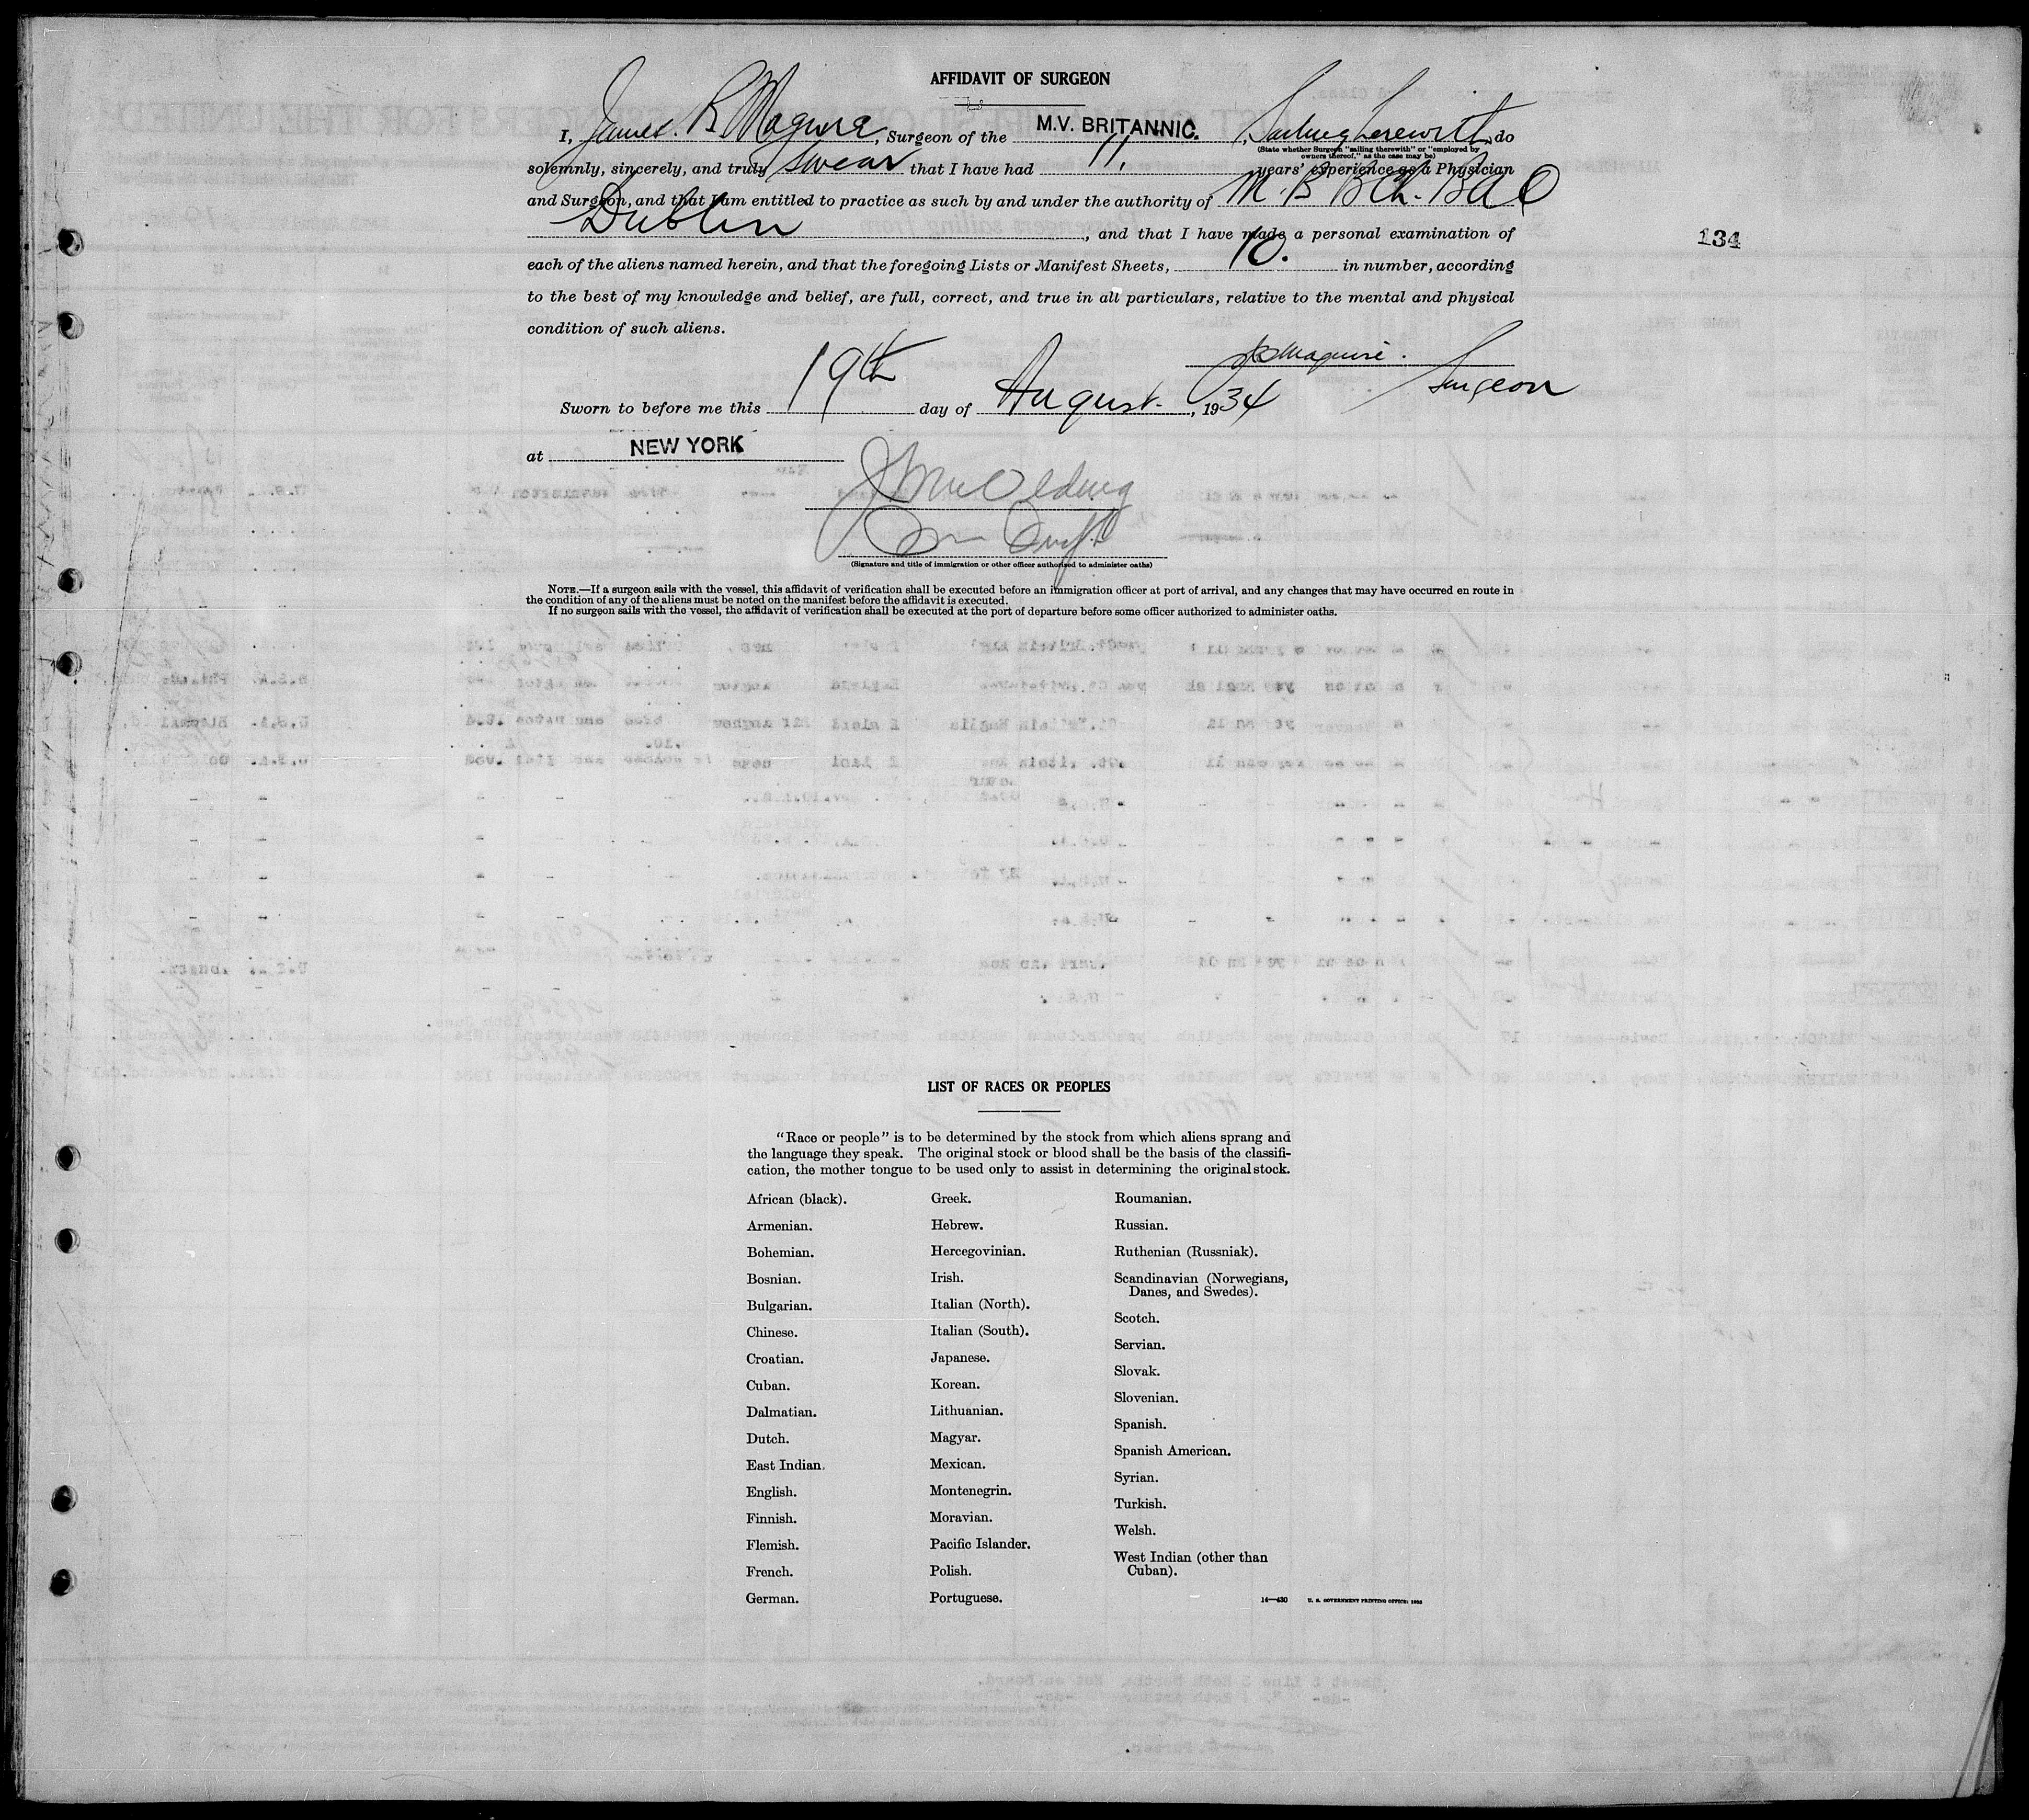 AFFIDAVIT OF SURGEON
I, James. R. Maguire, Surgeon of the M.V. BRITANNIC., Sailing therewith, do
(State whether Surgeon "sailing therewith" or "employed by
owners thereof," as the case may be)
solemnly, sincerely, and truly swear that I have had 11. years' experience as a Physician
and Surgeon, and that I am entitled to practice as such by and under the authority of M.B BCh. BAO
Dublin, and that I have made a personal examination of
134
each of the aliens named herein, and that the foregoing Lists or Manifest Sheets, 10. in number, according
to the best of my knowledge and belief, are full, correct, and true in all particulars, relative to the mental and physical
condition of such aliens.
JRMaguire.
Surgeon
Sworn to before me this 19th day of August., 1934
at NEW YORK
(Signature and title of immigration or other officer authorized to administer oaths)
NOTE.—If a surgeon sails with the vessel, this affidavit of verification shall be executed before an immigration officer at port of arrival, and any changes that may have occurred en route in
the condition of any of the aliens must be noted on the manifest before the affidavit is executed.
If no surgeon sails with the vessel, the affidavit of verification shall be executed at the port of departure before some officer authorized to administer oaths.
LIST OF RACES OR PEOPLES
"Race or people" is to be determined by the stock from which aliens sprang and
the language they speak. The original stock or blood shall be the basis of the classifi-
cation, the mother tongue to be used only to assist in determining the original stock.
African (black).
Armenian.
Bohemian.
Bosnian.
Bulgarian.
Chinese.
Croatian.
Cuban.
Dalmatian.
Dutch.
East Indian.
English.
Finnish.
Flemish.
French.
German.
Greek.
Hebrew.
Hercegovinian.
Irish.
Italian (North).
Italian (South).
Japanese.
Korean.
Lithuanian.
Magyar.
Mexican.
Montenegrin.
Moravian.
Pacific Islander.
Polish.
Portuguese.
Roumanian.
Russian.
Ruthenian (Russniak).
Scandinavian (Norwegians,
Danes, and Swedes).
Scotch.
Servian.
Slovak.
Slovenian.
Spanish.
Spanish American.
Syrian.
Turkish.
Welsh.
West Indian (other than
Cuban).
14—430 U. S. GOVERNMENT PRINTING OFFICE: